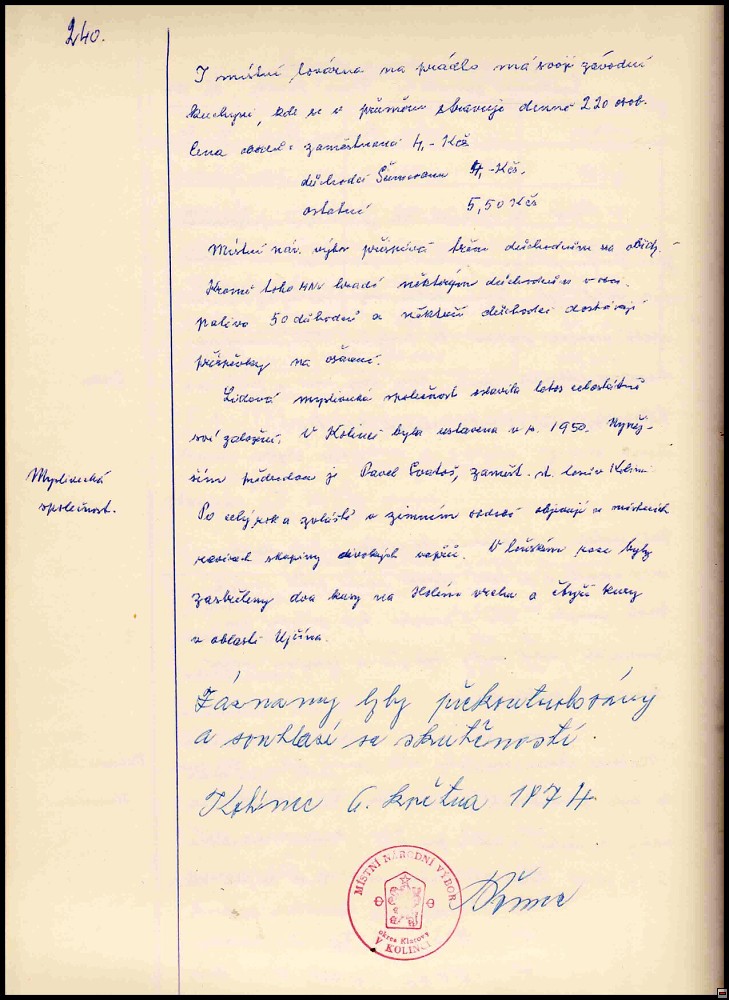 240.
I místní továrna na prádlo má svoji závodní
kuchyni, kde se v průměru stravuje denně 220 osob.
Cena obědů: zaměstnanci 4,- Kčs
důchodci Šumavanu 4,-Kčs.
ostatní 5,50 Kčs
Místní nár. výbor přispívá třem důchodcům na obědy.
Kromě toho MNV hradí některým důchodcům v obci
palivo 50 důchodců a někteří důchodci dostávají
příspěvky na ošacení.
Lidová myslivecká společnost oslavila letos
své založení. V Kolinci byla ustavena v r. 1950. Nyněj-
ším předsedou je Pavel Svatoš, zaměst.
Myslivecká
společnost.
Po celý rok a zvláště v zimním období objevují se v místních
revírech skupiny divokých vepřů. V loňském roce byly
zastřeleny dva kusy na Holém vrchu a čtyři kusy
v oblasti Ujčína.
Záznamy byly překontrolovány
a souhlasí se skutečností.
Kolinec 6. května 1974
MÍSTNÍ NÁRODNÍ VÝBOR
okres Klatovy
V KOLINCI